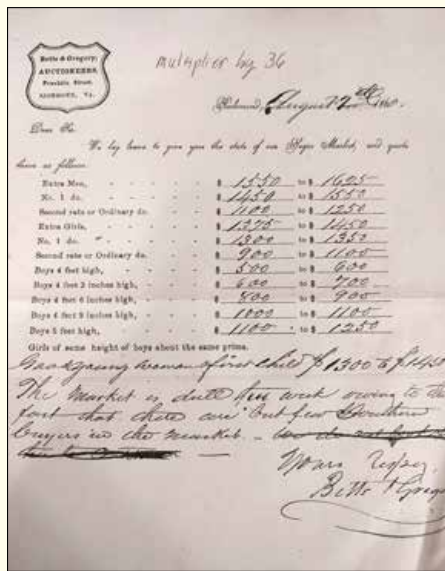 Betts & Gregory,
AUCTIONEERS,
Franklin Street,
RICHMOND, VA.
multiplier by 36
Richmond, August 2nd 1860.
Dear Sir
We beg leave to give you the state of our Negro Market, and quote
them as follows:
Extra Men, $ 1550 to $ 1625
No. 1 do. $ 1450 to $ 1550
Second rate or Ordinary do. $ 1100 to $ 1250
Extra Girls, $ 1375 to $ 1450
No. 1 do. " $ 1300 to $ 1350
Second rate or Ordinary do. $ 900 to $ 1100
Boys 4 feet high, $ 500 to $ 600
Boys 4 feet 3 inches high, $ 600 to $ 700
Boys 4 feet 6 inches high, $ 800 to $ 900
Boys 4 feet 9 inches high, $ 1000 to $ 1100
Boys 5 feet high, $ 1100 to $ 1250
Girls of same height of boys about the same prices.
Good young woman & first child $1300 to $1450
The market is dull this week owing to the
fact that there are but few Southern
buyers in the market –
Yours respy
Betts & Grego